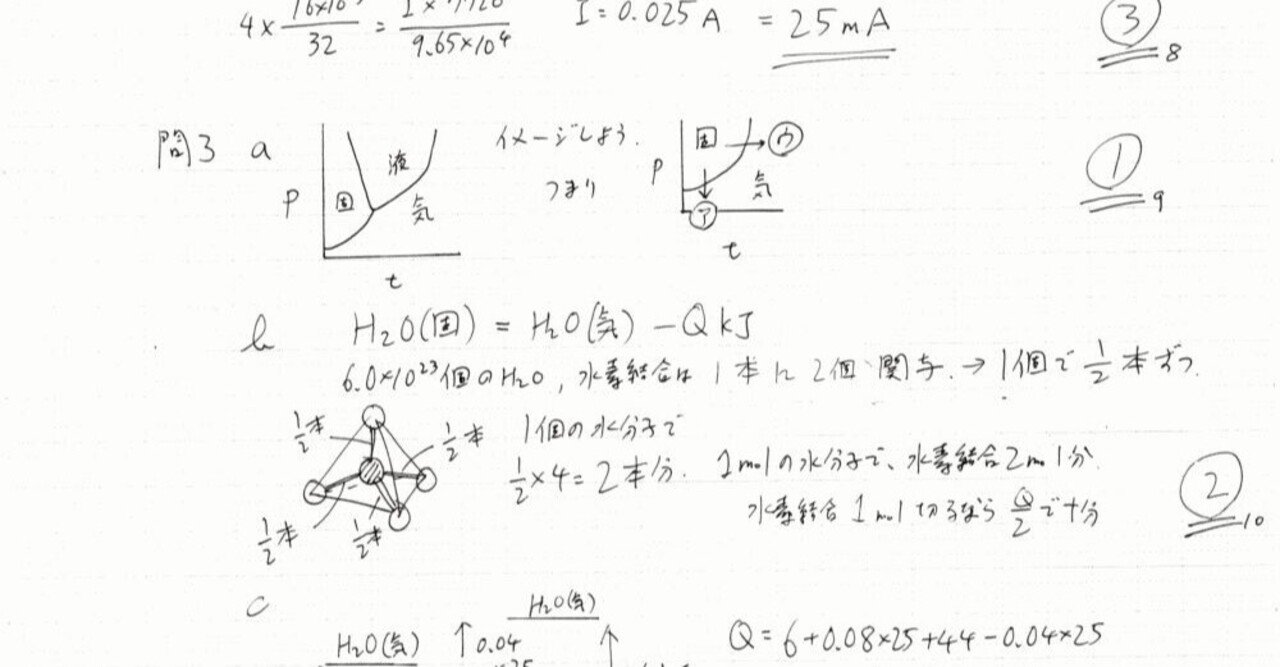 4× 16×10 / 32 = I× / 9.65×10⁴ I=0.025A =25mA ③ 8
問3 a 液 固 気 P t イメージしよう. つまり 固 ウ 気 ア P t ① 9
b H₂O(固) = H₂O(気) −Q kJ
6.0×10²³個のH₂O, 水素結合は1本に2個関与.→1個で1/2本ずつ.
1/2本 1/2本 1個の水分子で
1/2×4=2本分. 1molの水分子で、水素結合2mol分.
水素結合1mol切るなら Q/2 で十分 ② 10
1/2本 1/2本
c H₂O(気)
H₂O(気) ↑0.04 ↑ Q=6+0.08×25+44−0.04×25
×25